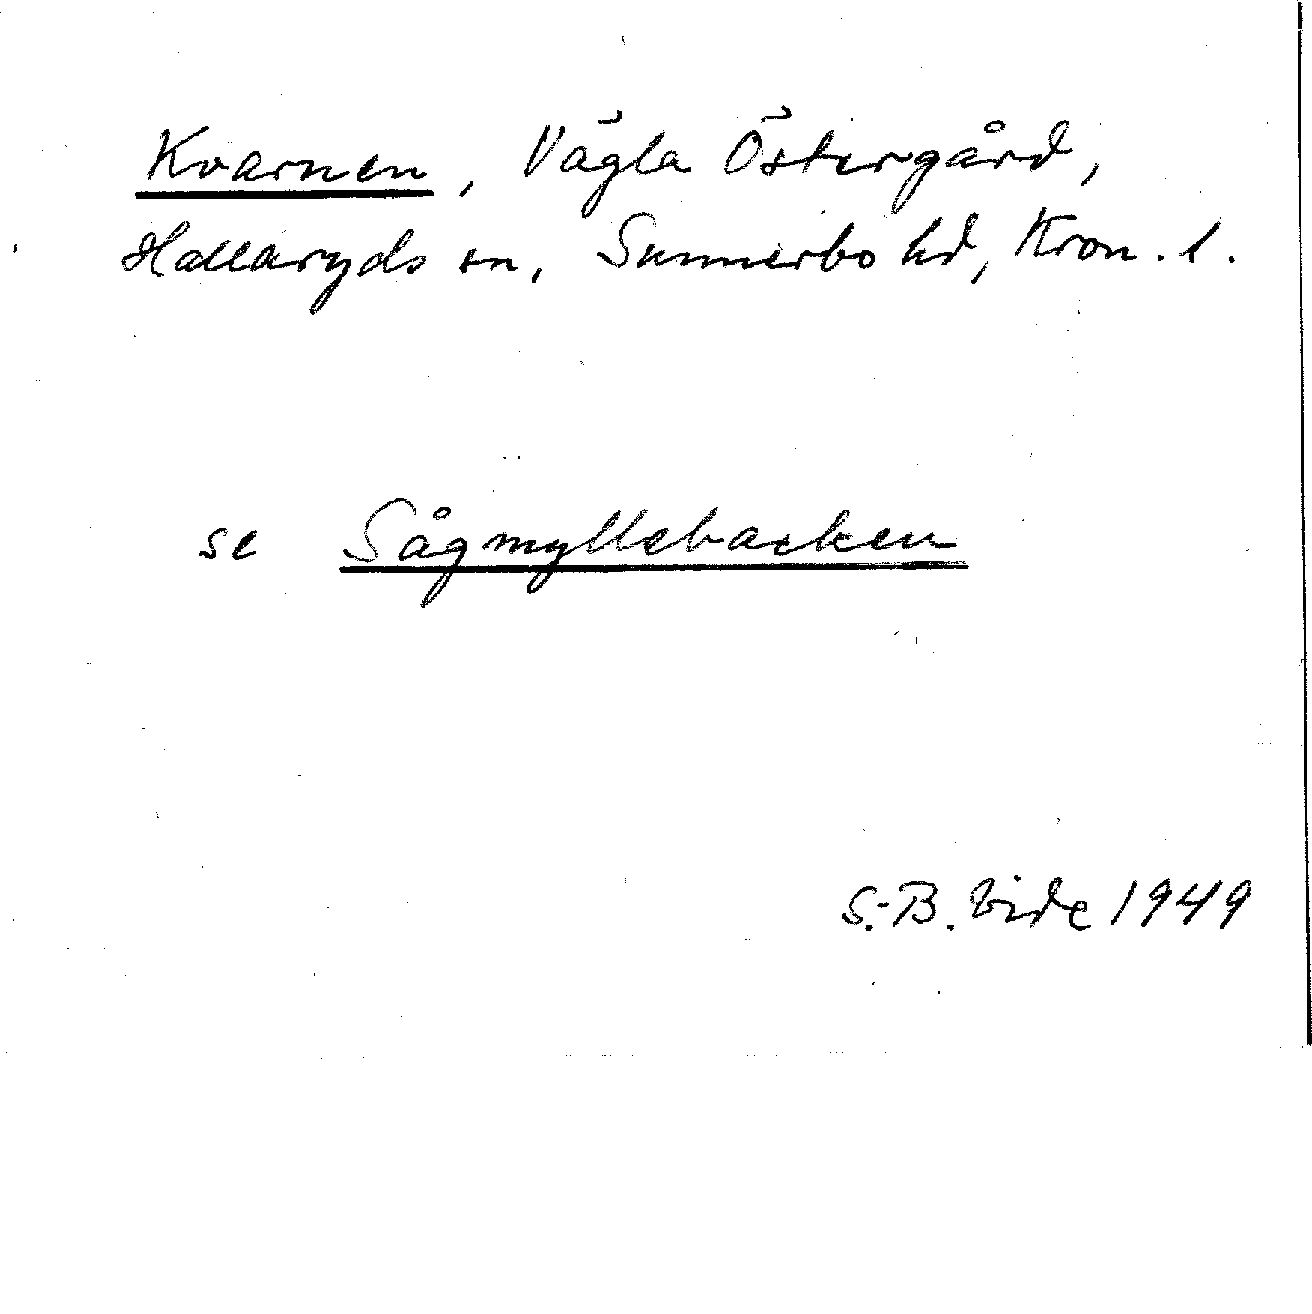 Kvarnen, Vägla Östergård,
Hallaryds sn, Sunnerbo hd, Kron. l.
se Sågmyllebacken
S.-B. Vide 1949